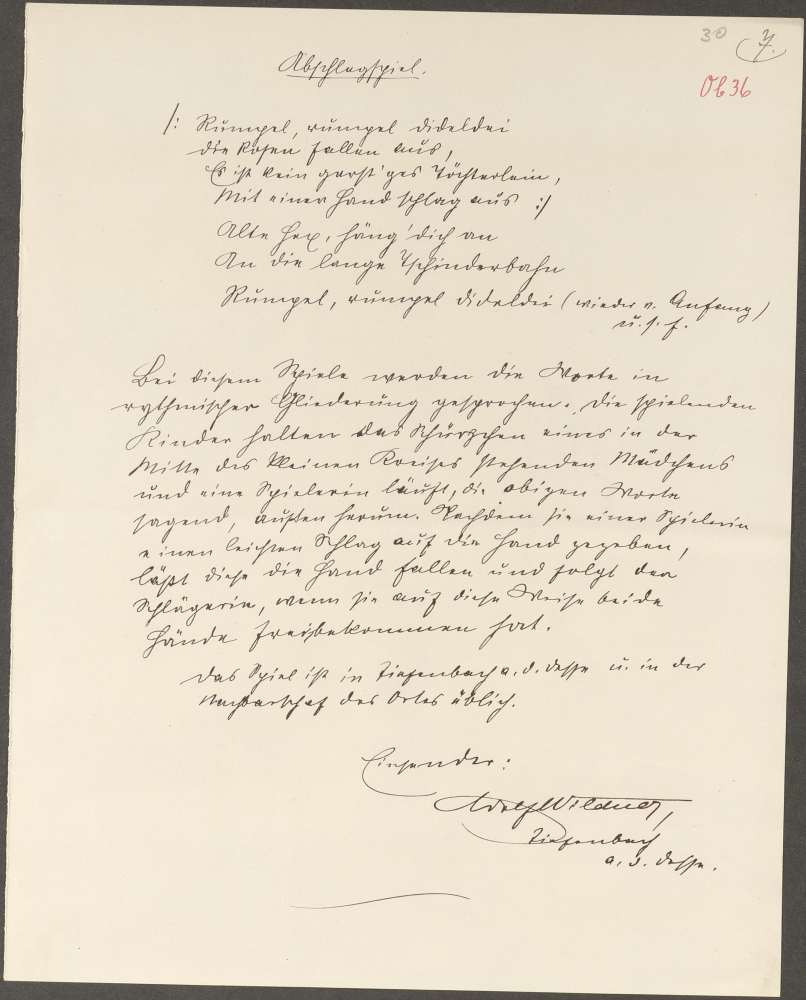 30
7.
Ob 36
Abschlagspiel.
/: Rumpel, rumpel dideldei
die Rosen fallen aus,
Es ist kein garst'ges Töchterlein,
Mit einer Hand schlag aus :/
Alte Hex, häng' dich an
An die lange Tschinderbahn
Rumpel, rumpel dideldei (wieder v. Anfang)
u. s. f.
Bei diesem Spiele werden die Worte in
rythmischer Gliederung gesprochen. Die spielenden
Kinder halten das Schürzchen eines in der
Mitte des kleinen Kreises stehenden Mädchens
und eine Spielerin läuft, die obigen Worte
sagend, außen herum. Nachdem sie einer Spielerin
einen leichten Schlag auf die Hand gegeben,
läßt diese die Hand fallen und folgt der
Schlägerin, wenn sie auf diese Weise beide
Hände freibekommen hat.
Das Spiel ist in Tiefenbach a. d. Desse u. in der
Nachbarschaf des Ortes üblich.
Einsender:
Adolf Wildner,
Tiefenbach
a. d. Desse.